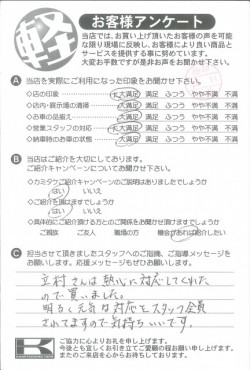 軽
お客様アンケート
当店では、お買い上げ頂いたお客様の声を可能
な限り現場に反映し、お客様により良い商品と
サービスを提供する事に努めています。
大変お手数ですが是非お声をお聞かせ下さい。
A 当店を実際にご利用になった印象をお聞かせ下さい。
◇店の印象 大満足 満足 ふつう やや不満 不満
◇店内・展示場の清掃 大満足 満足 ふつう やや不満 不満
◇お車の品揃え 大満足 満足 ふつう やや不満 不満
◇営業スタッフの対応 大満足 満足 ふつう やや不満 不満
◇納車時のお車の状態 大満足 満足 ふつう やや不満 不満
B 当店はご紹介を大切にしております。
ご紹介キャンペーンについてお聞かせ下さい。
◇カミタケご紹介キャンペーンのご説明はありましたでしょうか
はい いいえ
◇ご紹介を頂けますでしょうか
はい いいえ
◇具体的にご紹介頂ける方とのご関係をお聞かせ頂けますでしょうか
ご親族 ご友人 職場の方 機会があれば紹介したい
C 担当させて頂きましたスタッフへのご指摘、ご指導メッセージを
お願いします。応援メッセージもぜひお願いします。
立村さんは熱心に対応してくれた
ので買いました。
明るく元気な対応をスタッフ全員
されてますので気持ちいいです。
K
ご協力に心よりお礼を申し上げます。
今後とも宜しくお引き立てご愛顧の程お願い申し上げます。
またのご来店を心からお待ちしております。